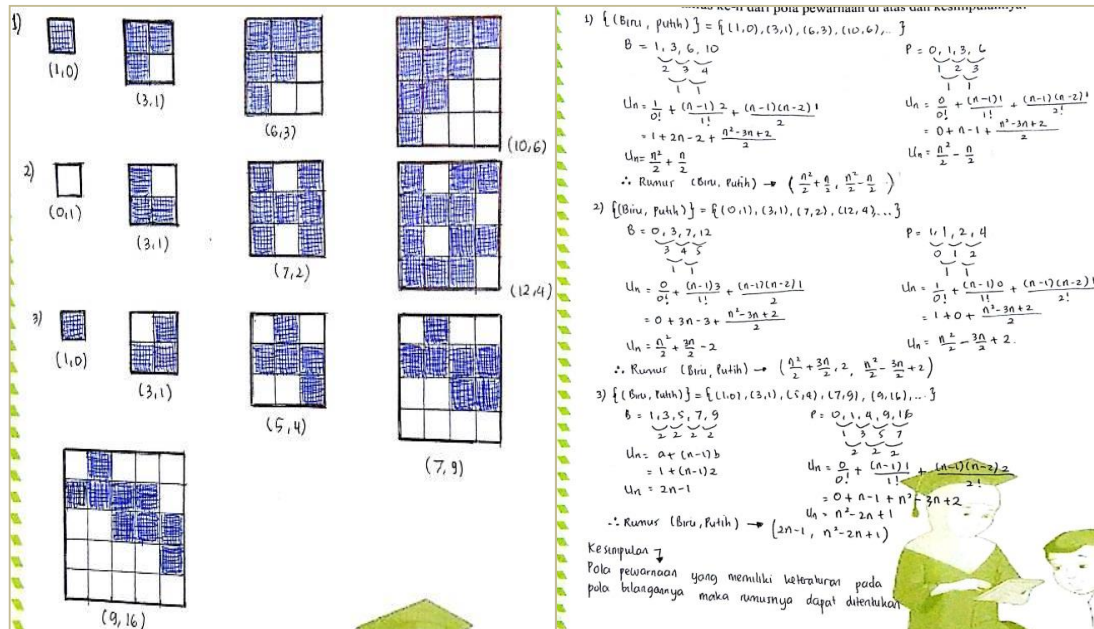 1)
(1,0)
(3,1)
(6,3)
(10,6)
2)
(0,1)
(3,1)
(7,2)
(12,4)
3)
(1,0)
(3,1)
(5,4)
(7,9)
(9,16)
ke-n dari pola pewarnaan di atas dan kesimpulannya.
1) {(Biru, putih)} = {(1,0), (3,1), (6,3), (10,6),.. }
B = 1, 3, 6, 10
2 3 4
1 1
Un = 1/0! + (n-1)2/1! + (n-1)(n-2)1/2
= 1 + 2n - 2 + n²-3n+2/2
Un = n²/2 + n/2
P = 0, 1, 3, 6
1 2 3
1 1
Un = 0/0! + (n-1)1/1! + (n-1)(n-2)1/2!
= 0 + n - 1 + n²-3n+2/2
Un = n²/2 - n/2
∴ Rumus (Biru, Putih) → (n²/2 + n/2, n²/2 - n/2)
2) {(Biru, Putih)} = {(0,1), (3,1), (7,2), (12,4),...}
B = 0, 3, 7, 12
3 4 5
1 1
Un = 0/0! + (n-1)3/1! + (n-1)(n-2)1/2
= 0 + 3n - 3 + n²-3n+2/2
Un = n²/2 + 3n/2 - 2
P = 1, 1, 2, 4
0 1 2
1 1
Un = 1/0! + (n-1)0/1! + (n-1)(n-2)1/2!
= 1 + 0 + n²-3n+2/2
Un = n²/2 - 3n/2 + 2.
∴ Rumus (Biru, Putih) → (n²/2 + 3n/2, 2, n²/2 - 3n/2 + 2)
3) {(Biru, Putih)} = {(1,0), (3,1), (5,4), (7,9), (9,16),...}
B = 1, 3, 5, 7, 9
2 2 2 2
Un = a + (n-1)b
= 1 + (n-1)2
Un = 2n-1
P = 0, 1, 4, 9, 16
1 3 5 7
2 2 2
Un = 0/0! + (n-1)1/1! + (n-1)(n-2)2/2!
= 0 + n - 1 + n² - 3n + 2
Un = n² - 2n + 1
∴ Rumus (Biru, Putih) → (2n-1, n²-2n+1)
Kesimpulan
Pola pewarnaan yang memiliki keteraturan pada
pola bilangannya maka rumusnya dapat ditentukan